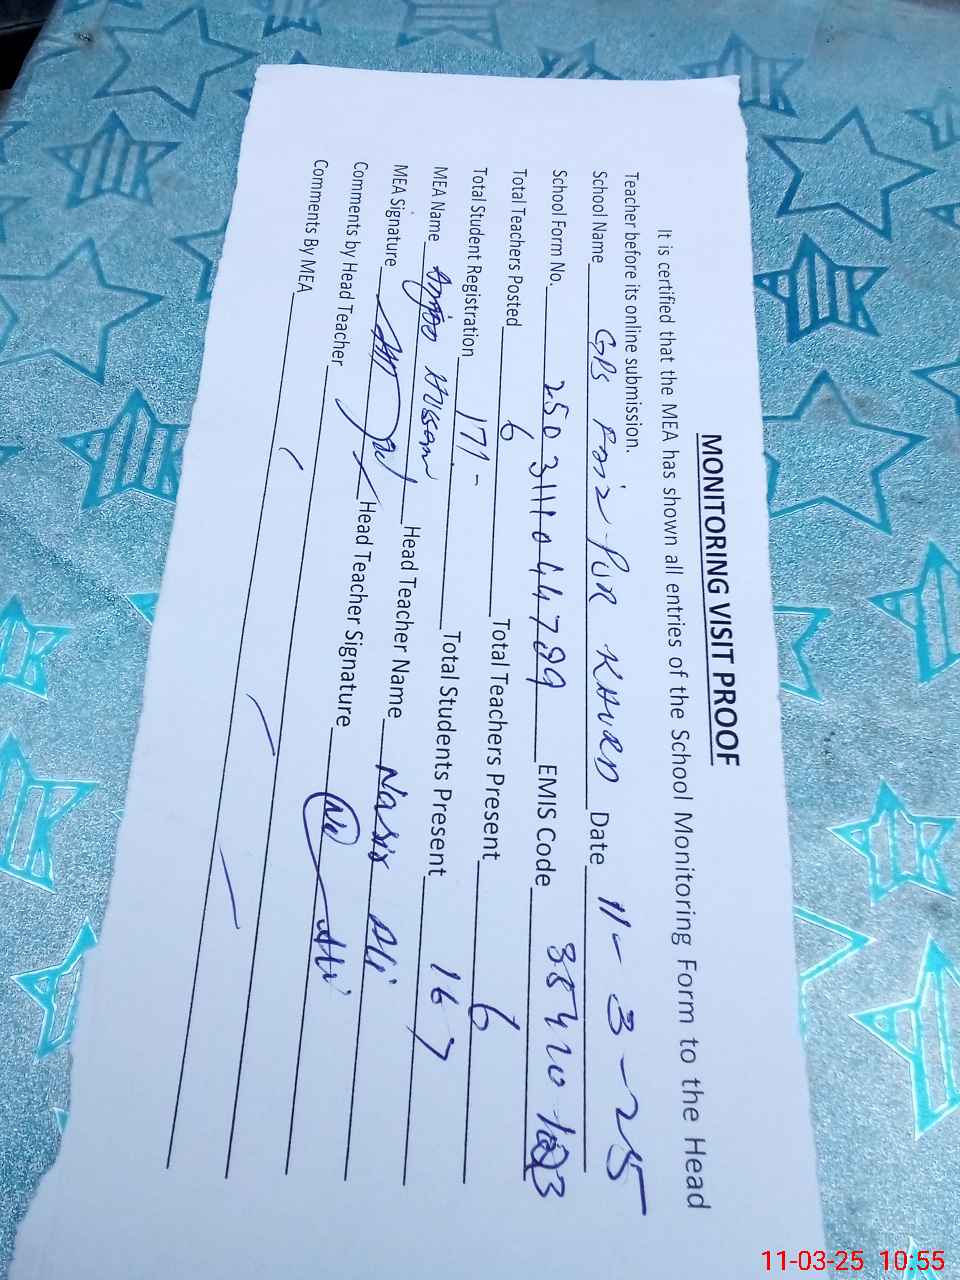 MONITORING VISIT PROOF
It is certified that the MEA has shown all entries of the School Monitoring Form to the Head
Teacher before its online submission.
School Name GPS Faiz Pur KHURD Date 11-3-25
School Form No. 2503111044799 EMIS Code
Total Teachers Posted 6 Total Teachers Present 6
Total Student Registration 171- Total Students Present 167
MEA Name Hussain Head Teacher Name Nasir Ali
MEA Signature Head Teacher Signature Ali
Comments by Head Teacher
Comments By MEA
11-03-25 10:55